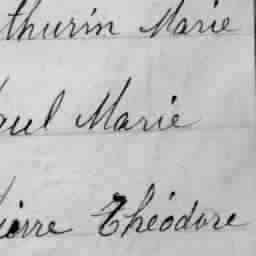 thurin Marie
aul Marie
ierre Théodore